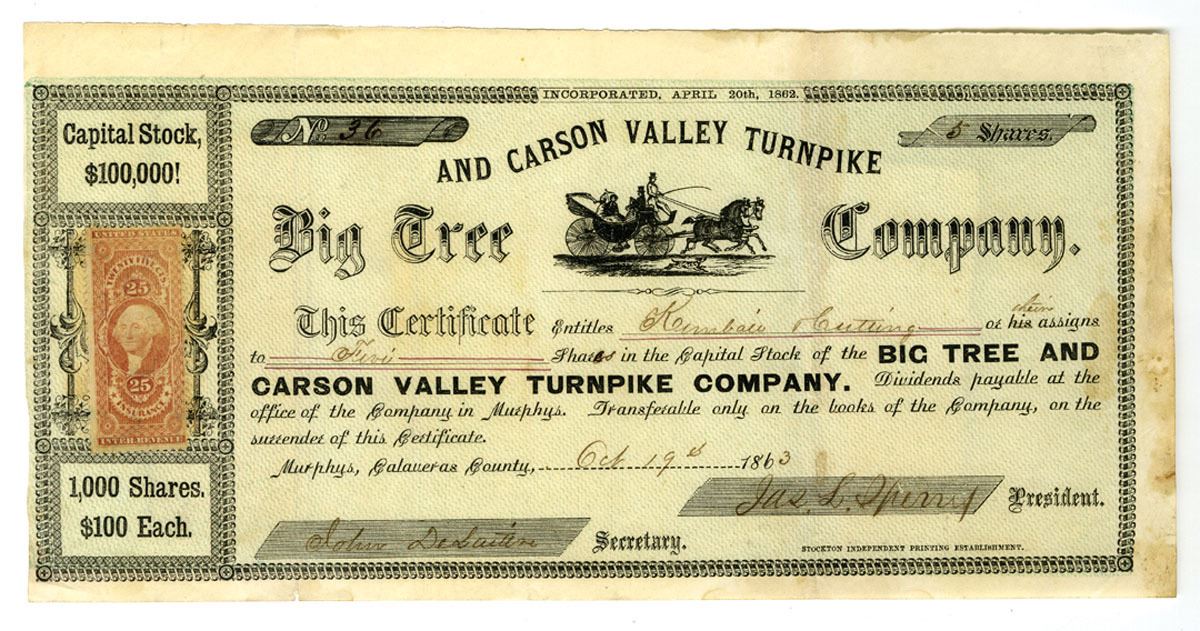 INCORPORATED, APRIL 20th, 1862.
Capital Stock,
$100,000!
No. 36
5 Shares.
AND CARSON VALLEY TURNPIKE
Big Tree Company.
UNITED STATES
25
25
INSURANCE
INTER. REVENUE
This Certificate Entitles Cutting or his their assigns
to Five Shares in the Capital Stock of the BIG TREE AND
CARSON VALLEY TURNPIKE COMPANY. Dividends payable at the
office of the Company in Murphys. Transferable only on the books of the Company, on the
surrender of this Certificate.
Murphys, Calaveras County, Oct 19th 1863
1,000 Shares.
$100 Each.
Jas. L. Sperry President.
John Secretary.
STOCKTON INDEPENDENT PRINTING ESTABLISHMENT.